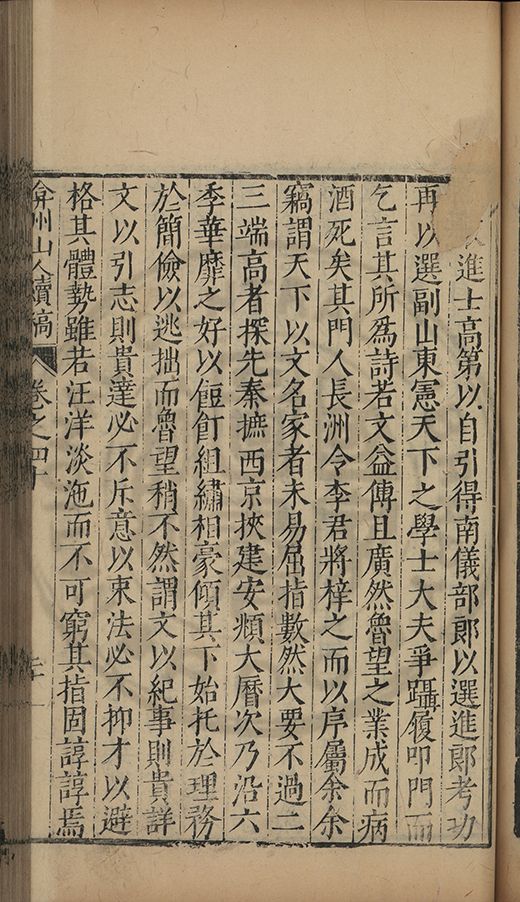 進士高第以自引得南儀部郎以選進郎考功
再以選副山東憲天下之學士大夫爭躡履叩門而
乞言其所爲詩若文益傳且廣然魯望之業成而病
酒死矣其門人長洲令李君將梓之而以序屬余余
竊謂天下以文名家者未易屈指數然大要不過二
三端高者探先秦摭西京挾建安頫大曆次乃沿六
季華靡之好以餖飣組繡相豪傾其下始托於理務
於簡儉以逃拙而魯望稍不然謂文以紀事則貴詳
文以引志則貴達必不斥意以束法必不抑才以避
格其體勢雖若汪洋淡沲而不可窮其指固諄諄焉
弇州山人續稿 卷之四十